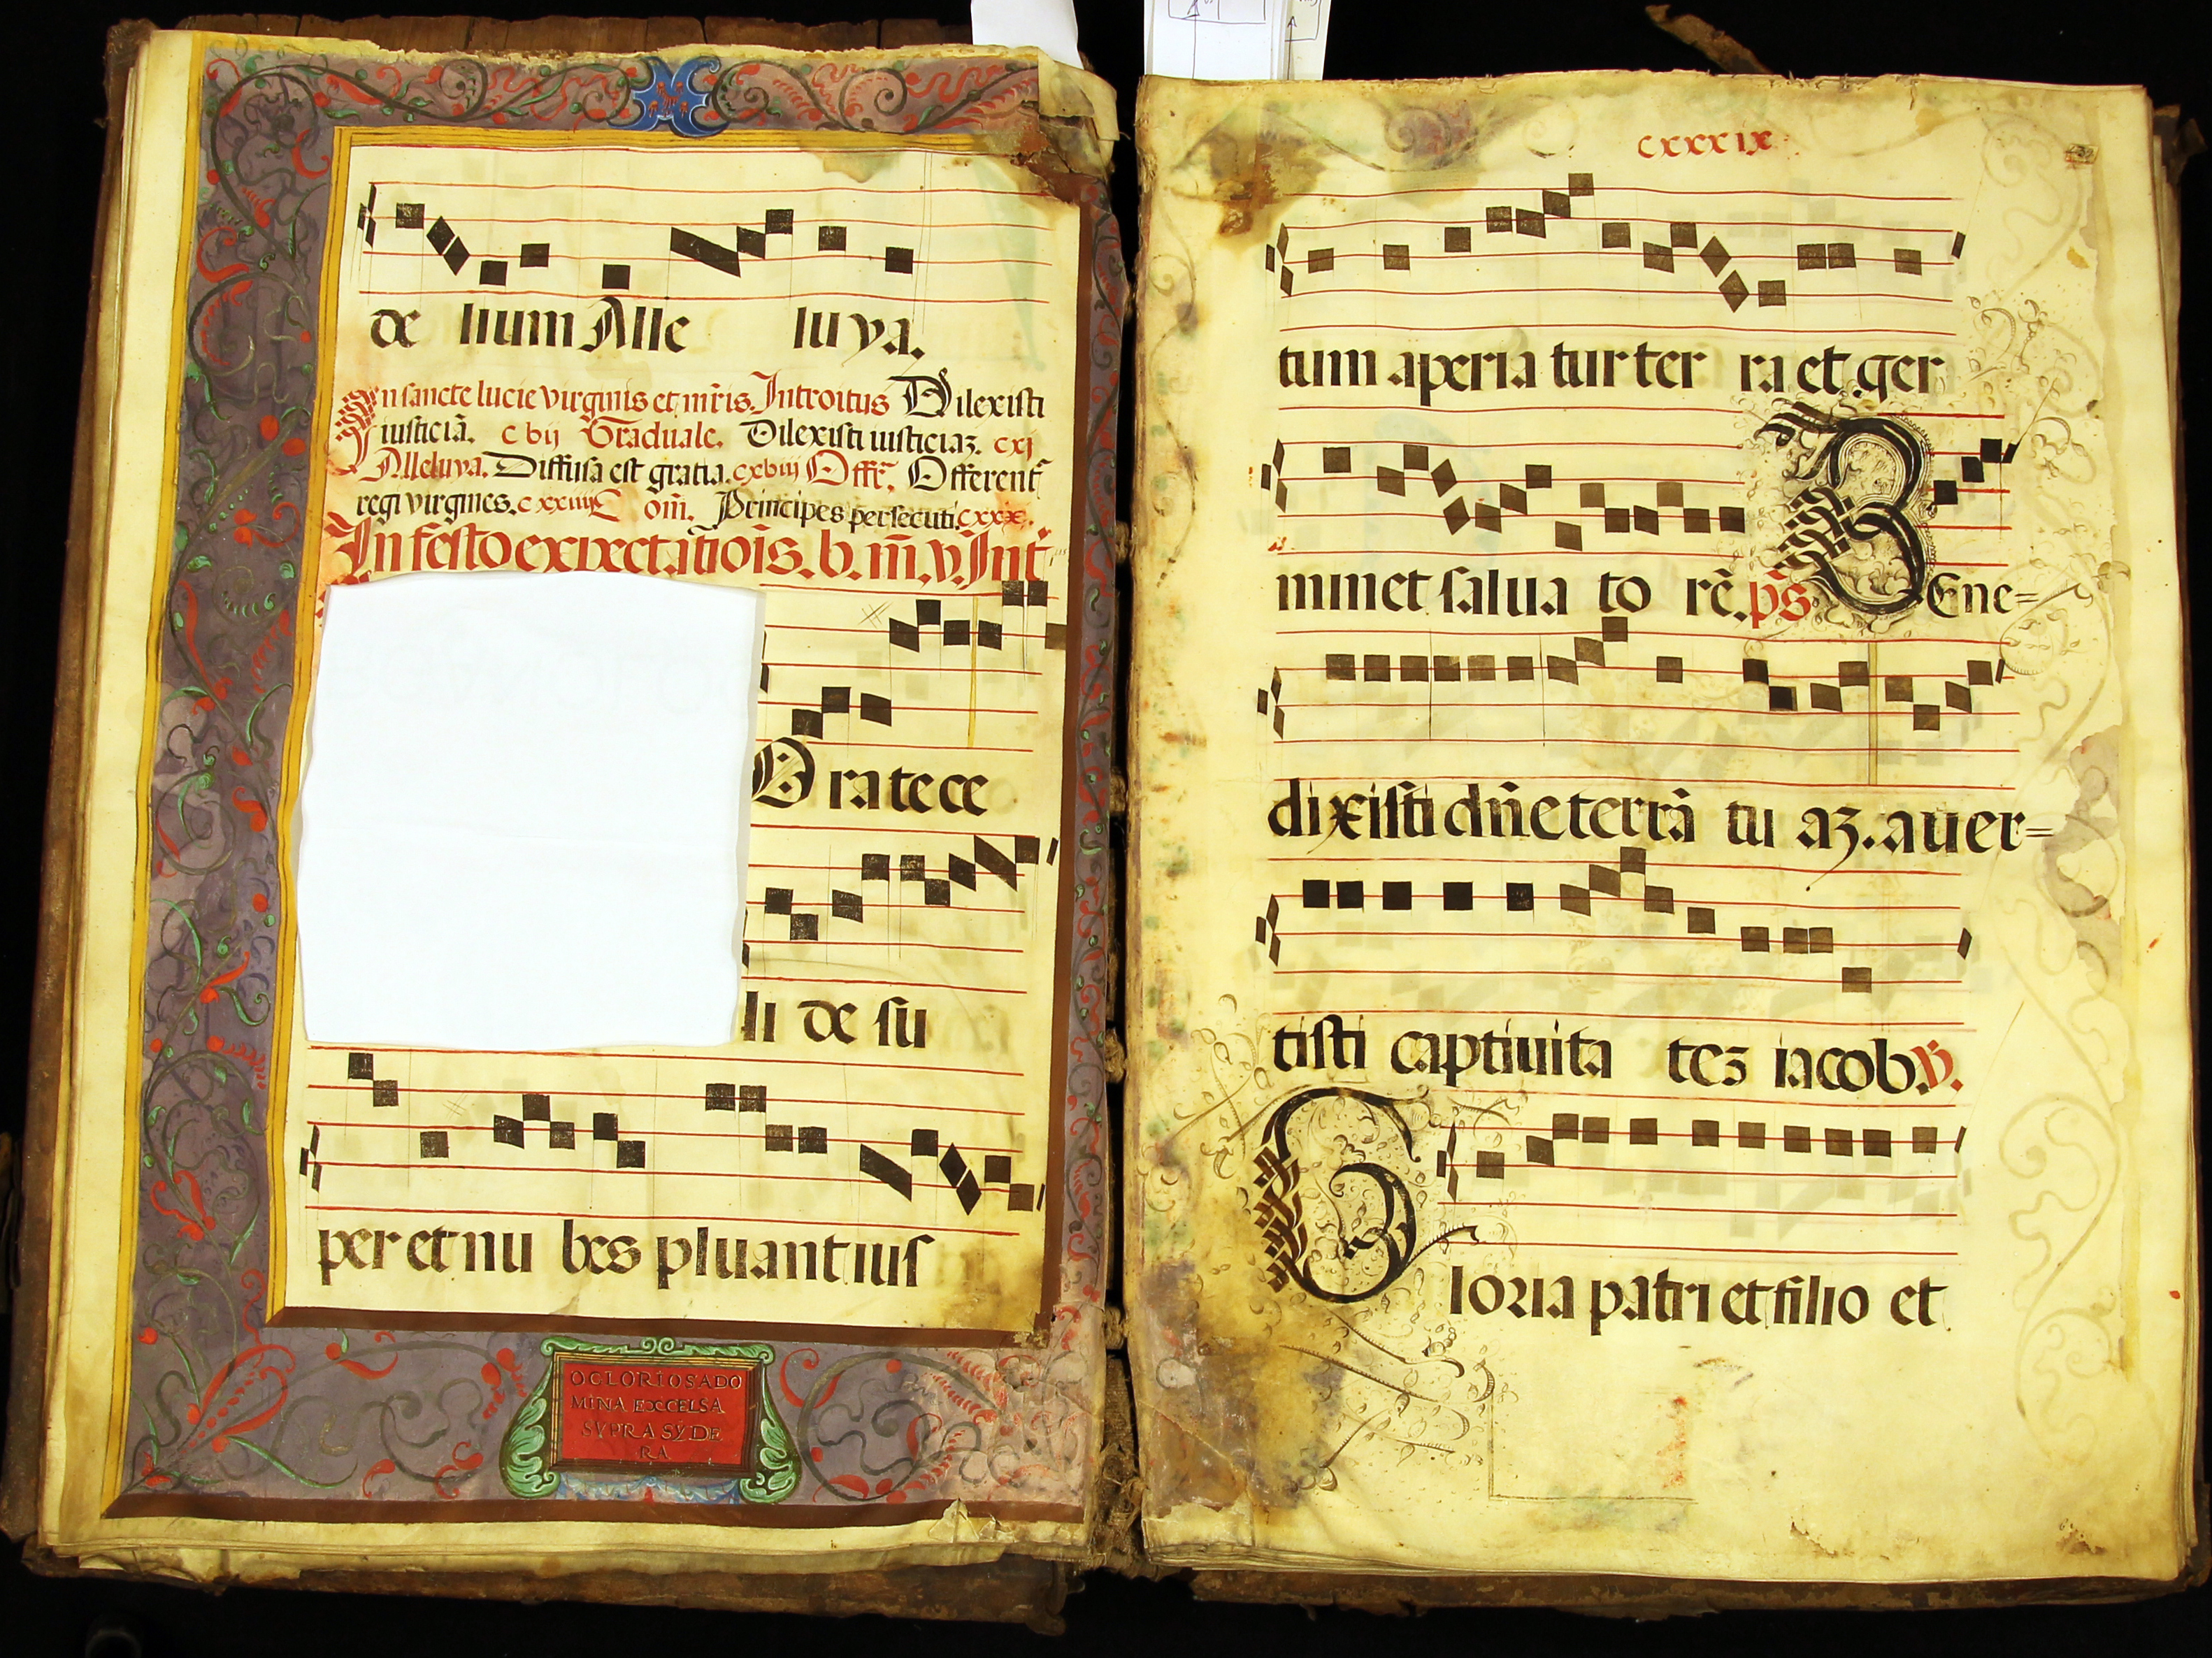 de lium Alle luya.
In sancte lucie virginis et mr̃is. Introitus Dilexisti
iusticiã. cvij Graduale. Dilexisti iusticiaz. cxj
Alleluya. Diffusa est gratia. cxviij Offr̃. Offerent̃
regi virgines. cxxiiij Com̃. Principes persecuti cxxx.
In festo expectatiois. b. m̃. v. Int̃
Orate ce
li de su
per et nu bes pluant ius
OGLORIOSADO
MINA EXCELSA
SVPRA SYDE
RA
cxxxix
tum aperia tur ter ra et ger
minet salua to rẽ. ps Bene=
dixisti dñe terrã tu az. auer=
tisti captiuita tez iacob. v.
Gloria patri et filio et